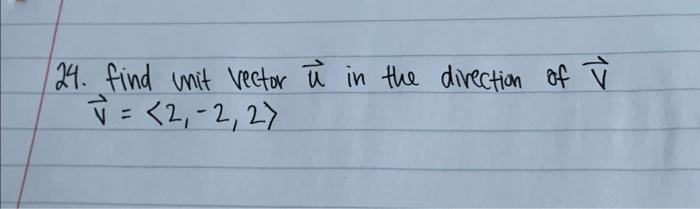 24. find unit vector \vec{u} in the direction of \vec{v}
\vec{v} = <2, -2, 2>